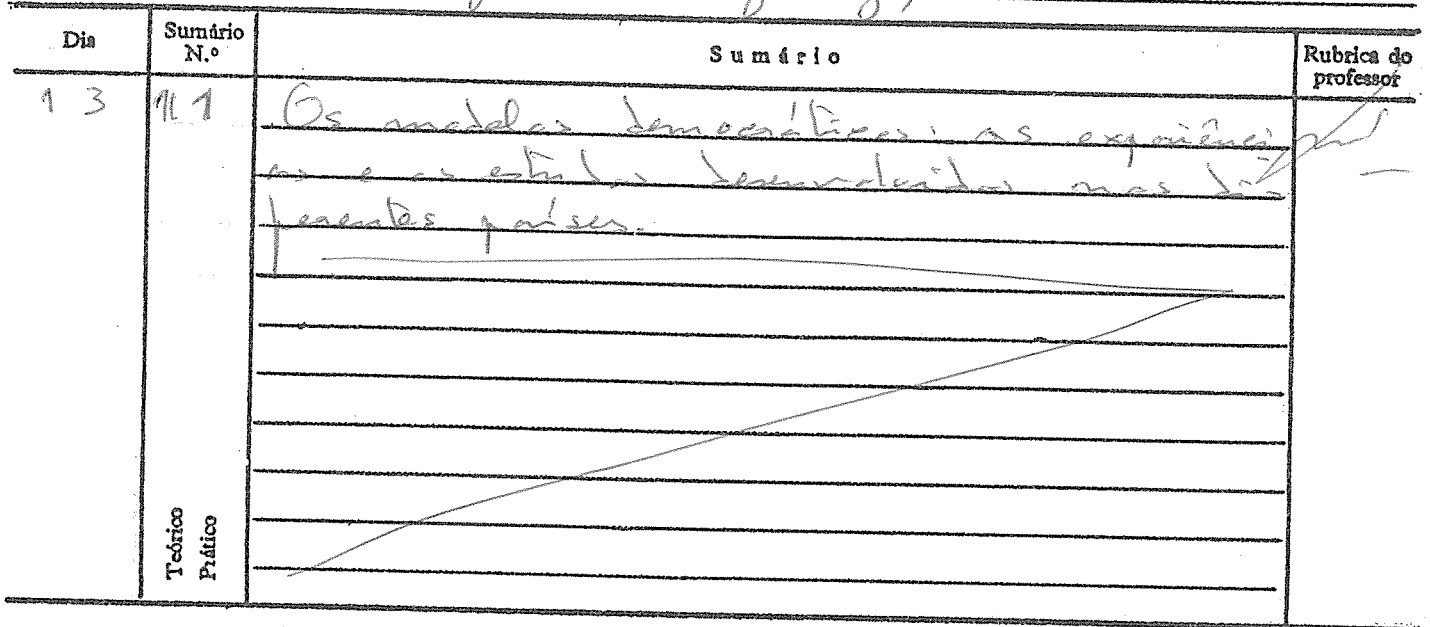 Dia Sumário N.º Sumário Rubrica do professor
13 11 Os modelos democráticos: as experiênci
as e os estudos desenvolvidos nos di
ferentes países.
Teórico
Prático